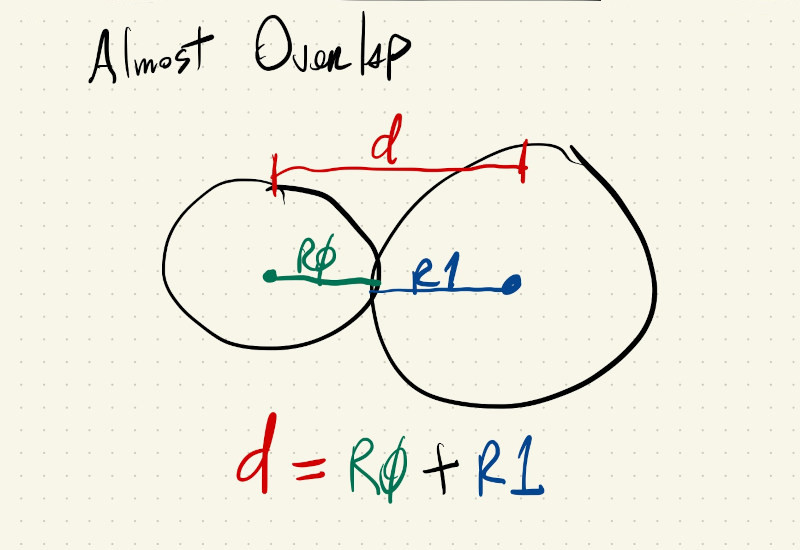 Almost Overlap
d
RØ
R1
d = RØ + R1